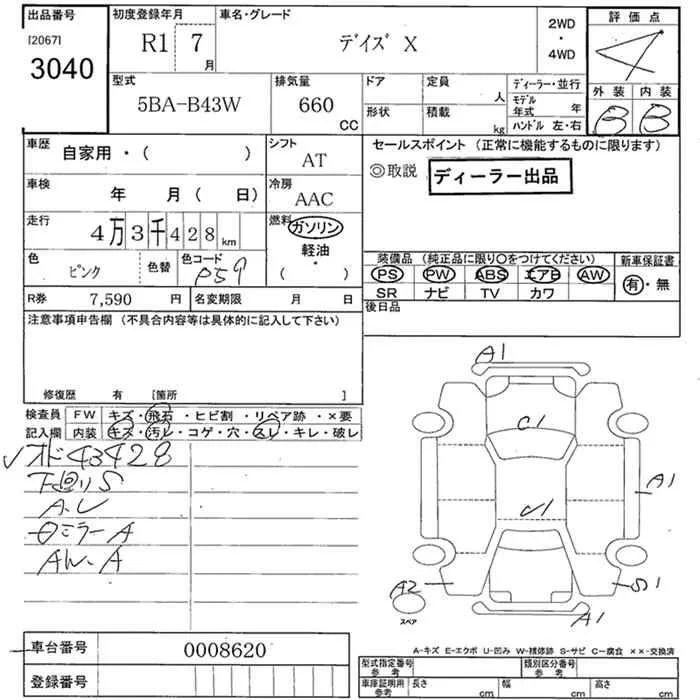 出品番号
[2067]
3040
初度登録年月
R1 7 月
車名・グレード
デイズ X
2WD
・
4WD
評価点
4
外装 内装
B B
型式
5BA-B43W
排気量
660 CC
ドア
形状
定員 人
積載 kg
ディーラー・並行
モデル年式 年
ハンドル 左・右
車歴
自家用・( )
シフト
AT
車検
年 月( 日)
冷房
AAC
走行
4万3千428km
燃料
ガソリン
軽油
・
( )
色
ピンク
色替
色コード
P59
R券 7,590 円
名変期限 月 日
セールスポイント (正常に機能するものに限ります)
◎取説 ディーラー出品
装備品 (純正品に限り○をつけてください)
PS PW ABS エアB AW
SR ナビ TV カワ
新車保証書
有・無
後日品
注意事項申告欄 (不具合内容等は具体的に記入して下さい)
修復歴 有 [箇所 ]
検査員
記入欄
FW キズ・飛石・ヒビ割・リペア跡・×要
内装 キズ・汚レ・コゲ・穴・スレ・キレ・破レ
✓オド43428
下回りS
A.U
ミラーA
AW.A
A1
C1
A1
U1
A2
S1
A1
スペア
A-キズ E-エクボ U-凹み W-補修跡 S-サビ C-腐食 ××-交換済
車台番号 0008620
登録番号
型式指定番号
参考
類別区分番号
参考
車庫証明用
参考
長さ cm
幅 cm
高さ cm